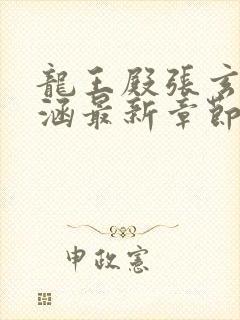 龍王殿張玄
涵最新章節
申政憲